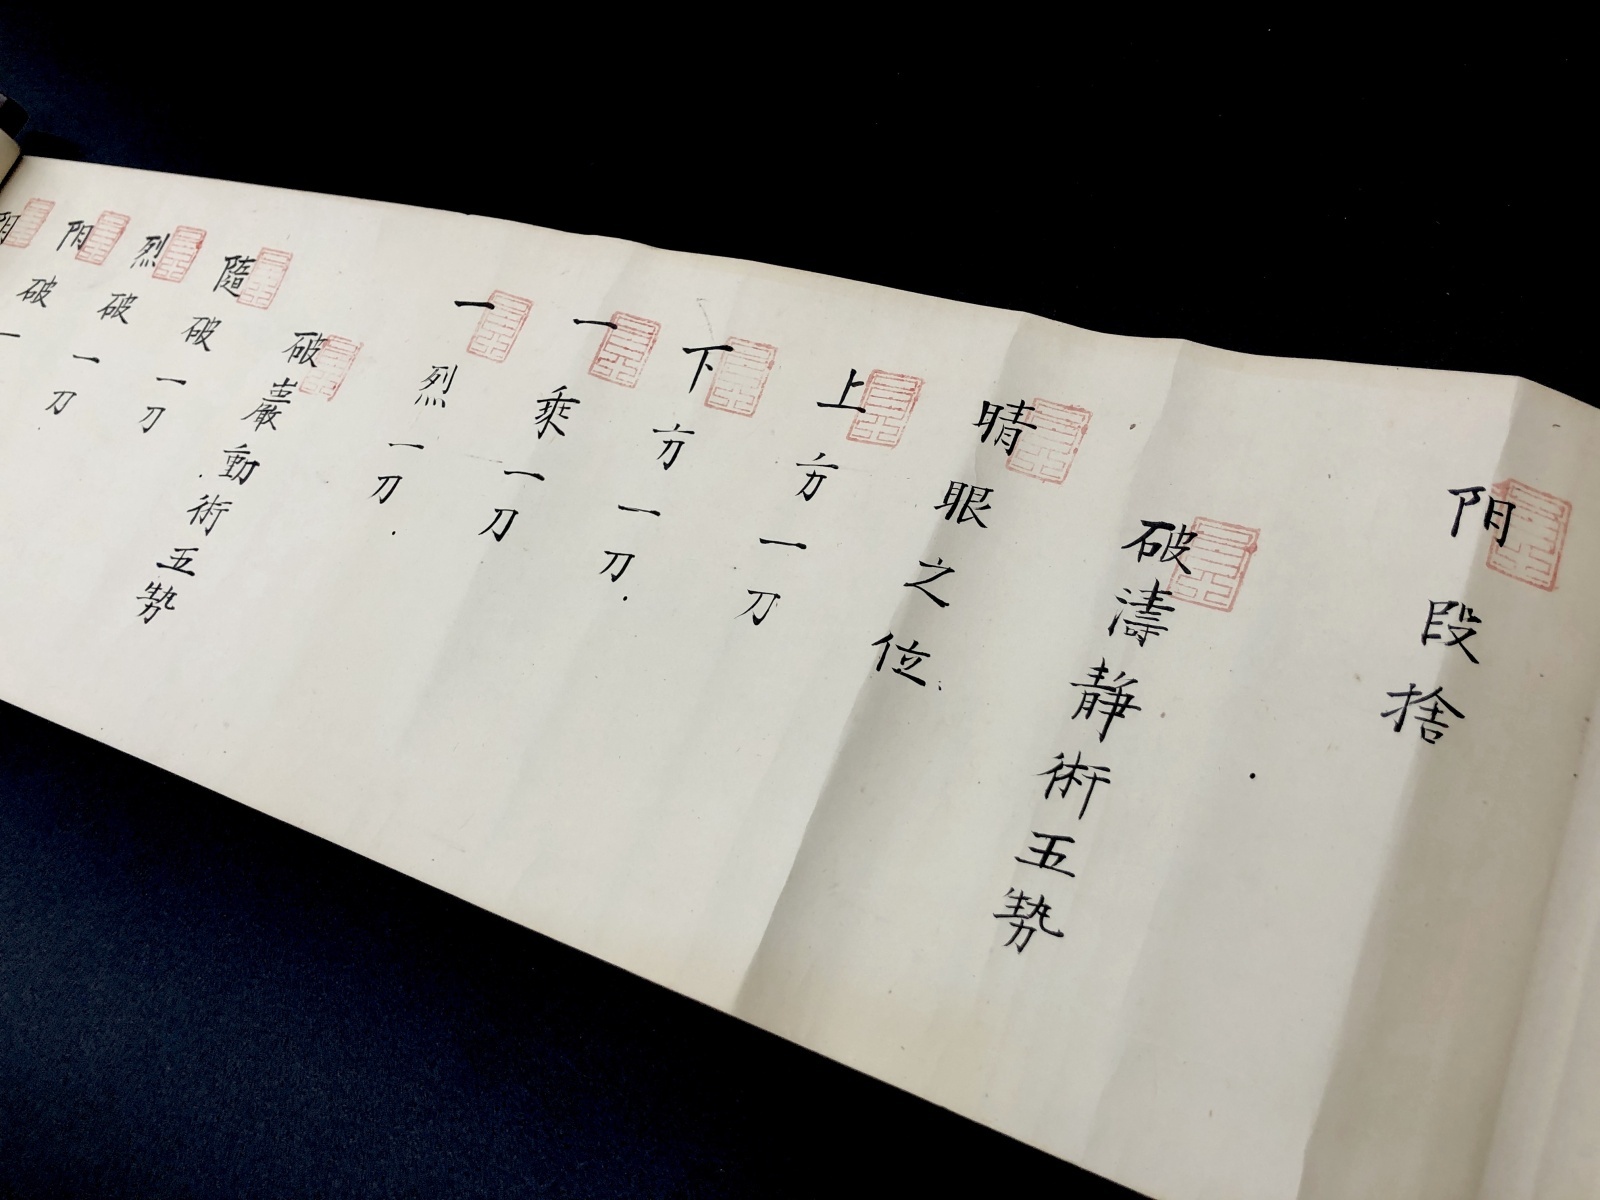 阴段捨
破濤静術五勢
晴眼之位
上方一刀
下方一刀
一乗一刀
一烈一刀
破巖動術五勢
隨破一刀
烈破一刀
阴破一刀
破一